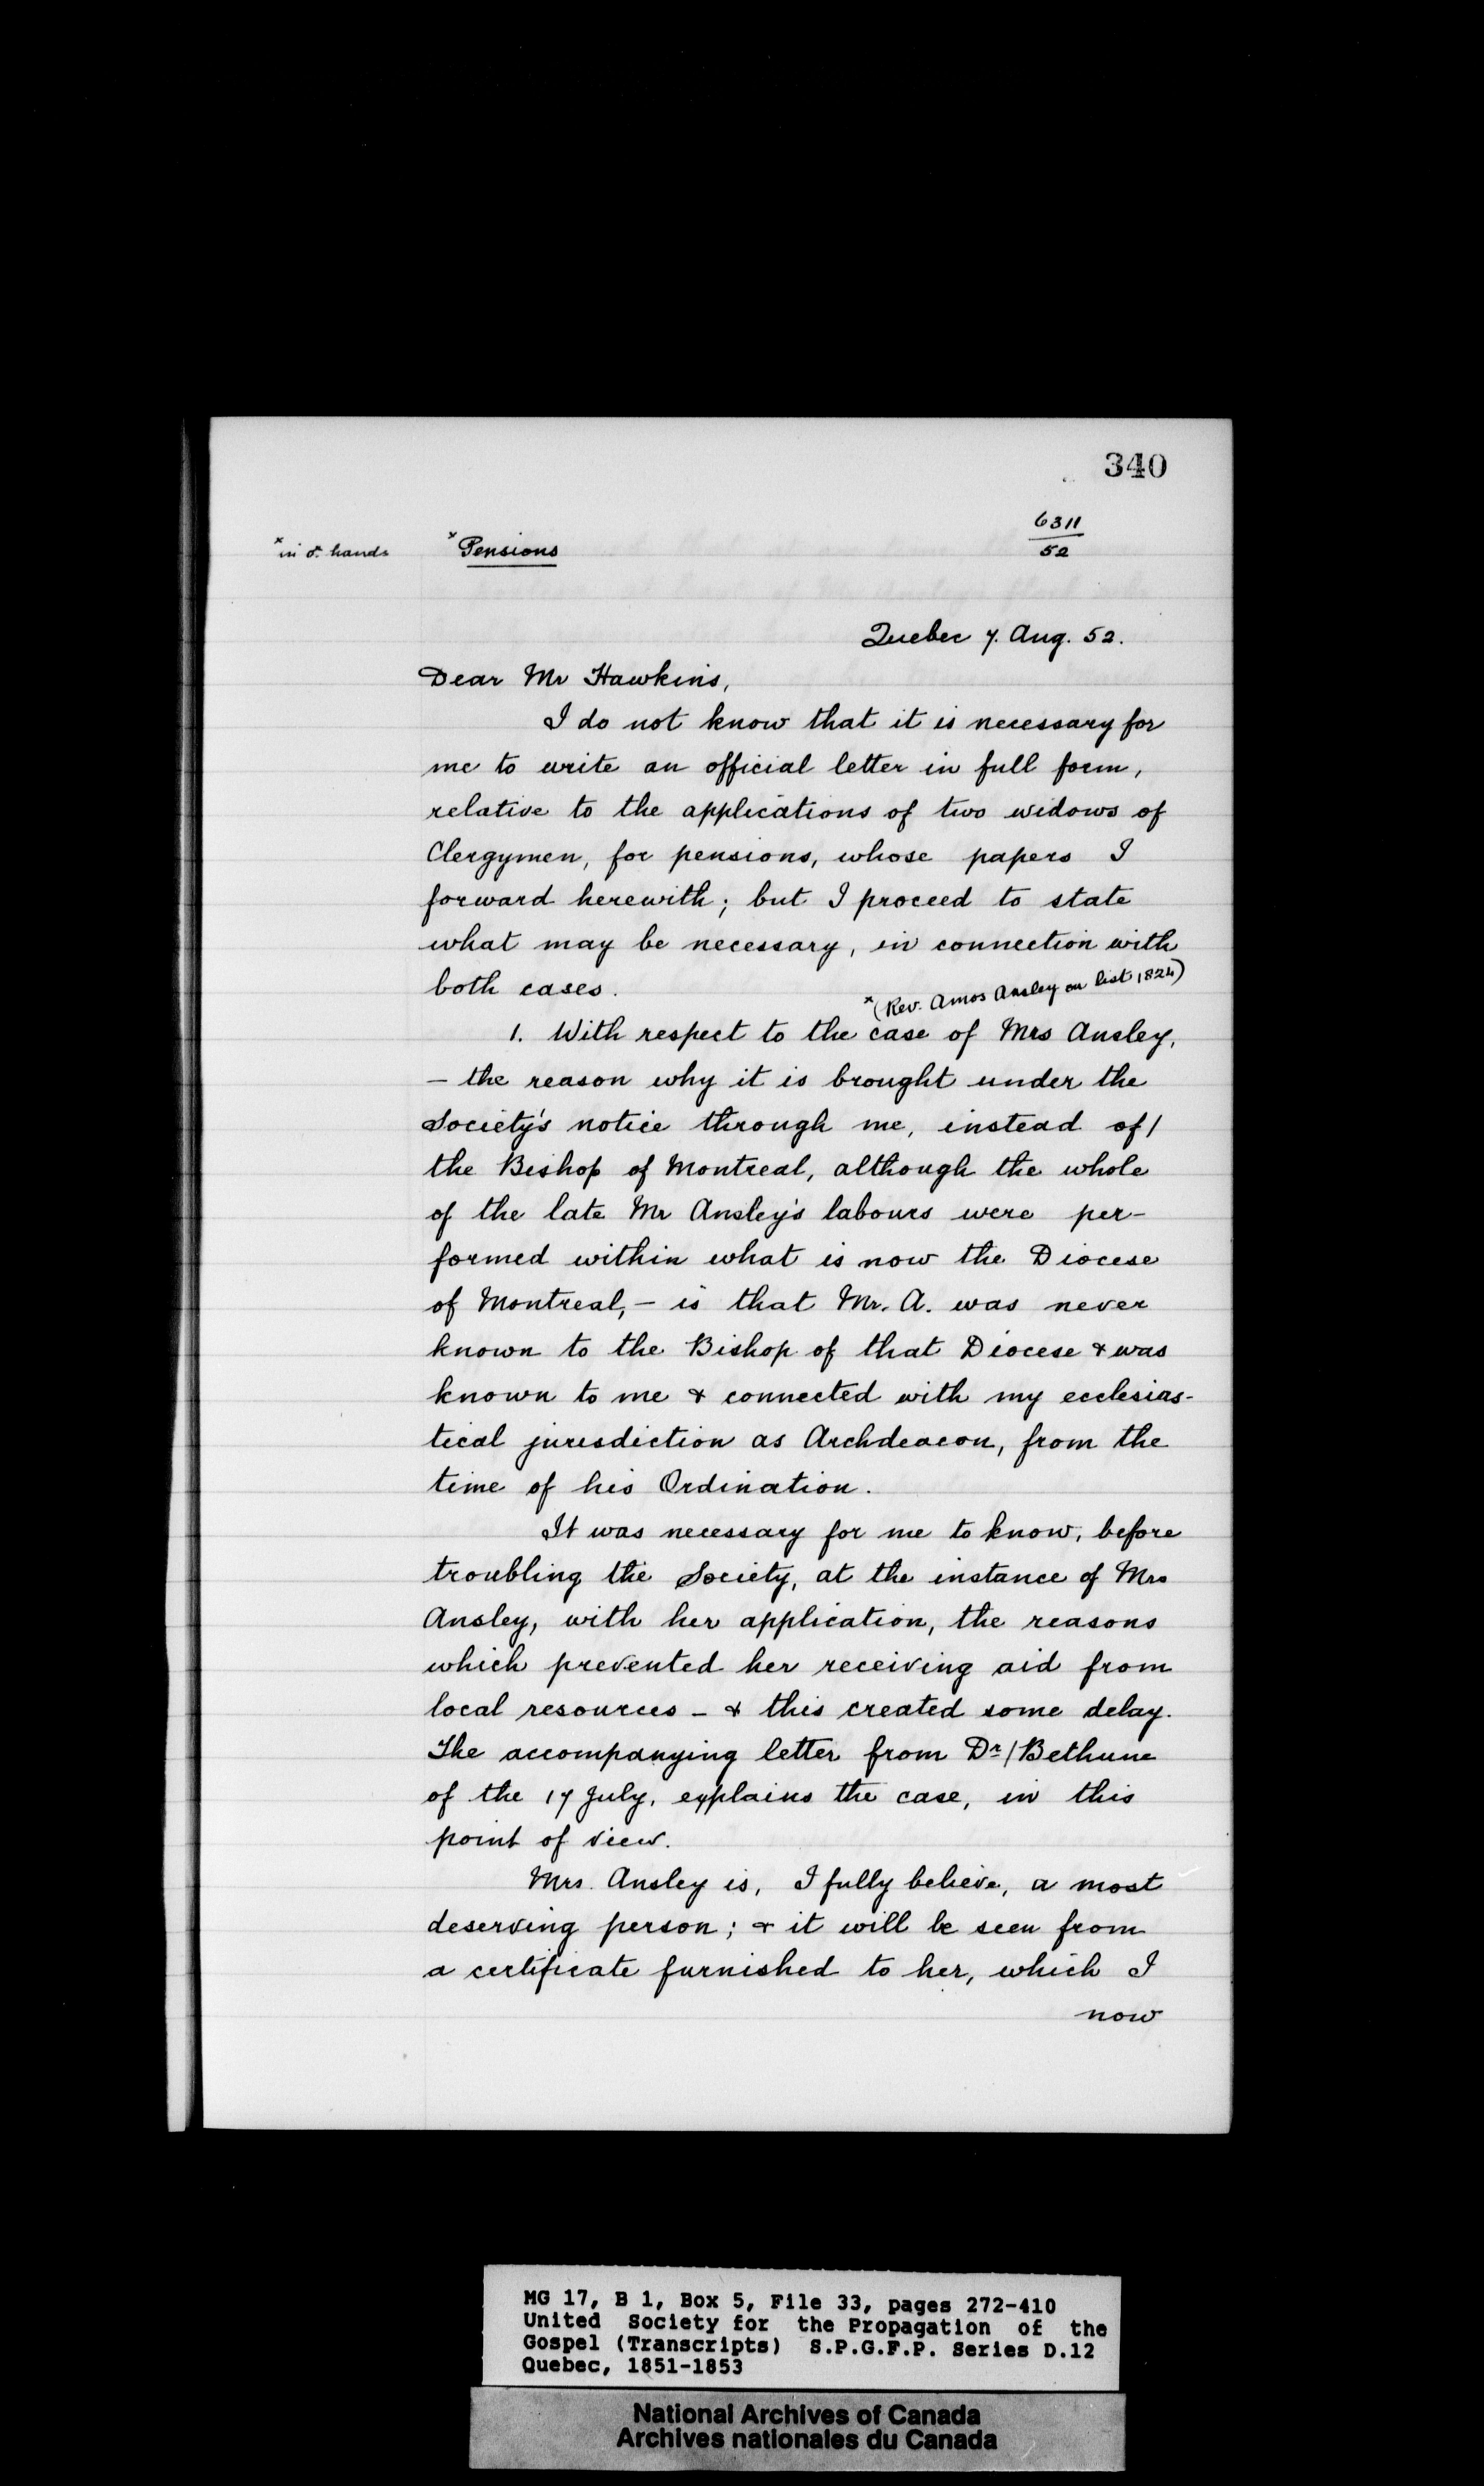 340
6311
52
*in or hands
*Pensions
Quebec 7. Aug. 52.
Dear Mr Hawkins,
I do not know that it is necessary for
me to write an official letter in full form,
relative to the applications of two widows of
Clergymen, for pensions, whose papers I
forward herewith; but I proceed to state
what may be necessary, in connection with
both cases.
*(Rev. Amos Ansley on list 1824)
1. With respect to the case of Mrs Ansley,
- the reason why it is brought under the
Society's notice through me, instead of/
the Bishop of Montreal, although the whole
of the late Mr Ansley's labours were per-
formed within what is now the Diocese
of Montreal, - is that Mr. A. was never
known to the Bishop of that Diocese & was
known to me & connected with my ecclesias-
tical jurisdiction as Archdeacon, from the
time of his Ordination.
It was necessary for me to know, before
troubling the Society, at the instance of Mrs
Ansley, with her application, the reasons
which prevented her receiving aid from
local resources - & this created some delay.
The accompanying letter from Dr/Bethune
of the 17 July, explains the case, in this
point of view.
Mrs. Ansley is, I fully believe, a most
deserving person; & it will be seen from
a certificate furnished to her, which I
now
MG 17, B 1, Box 5, File 33, pages 272-410
United Society for the Propagation of the
Gospel (Transcripts) S.P.G.F.P. Series D.12
Quebec, 1851-1853
National Archives of Canada
Archives nationales du Canada